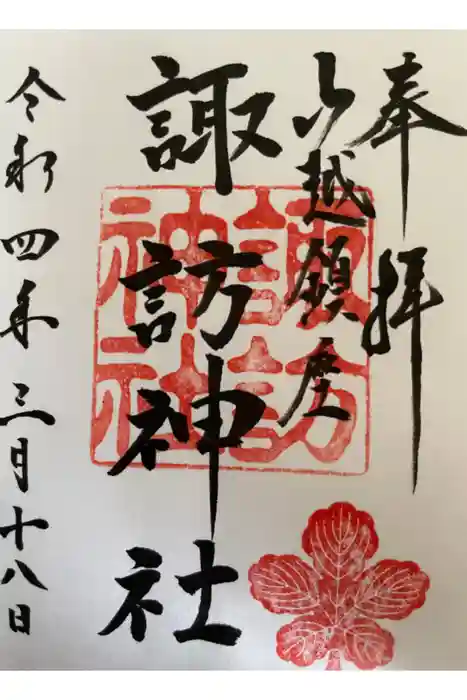 奉拝
山越鎮座
諏訪神社
諏訪
神社
令和四年三月十八日